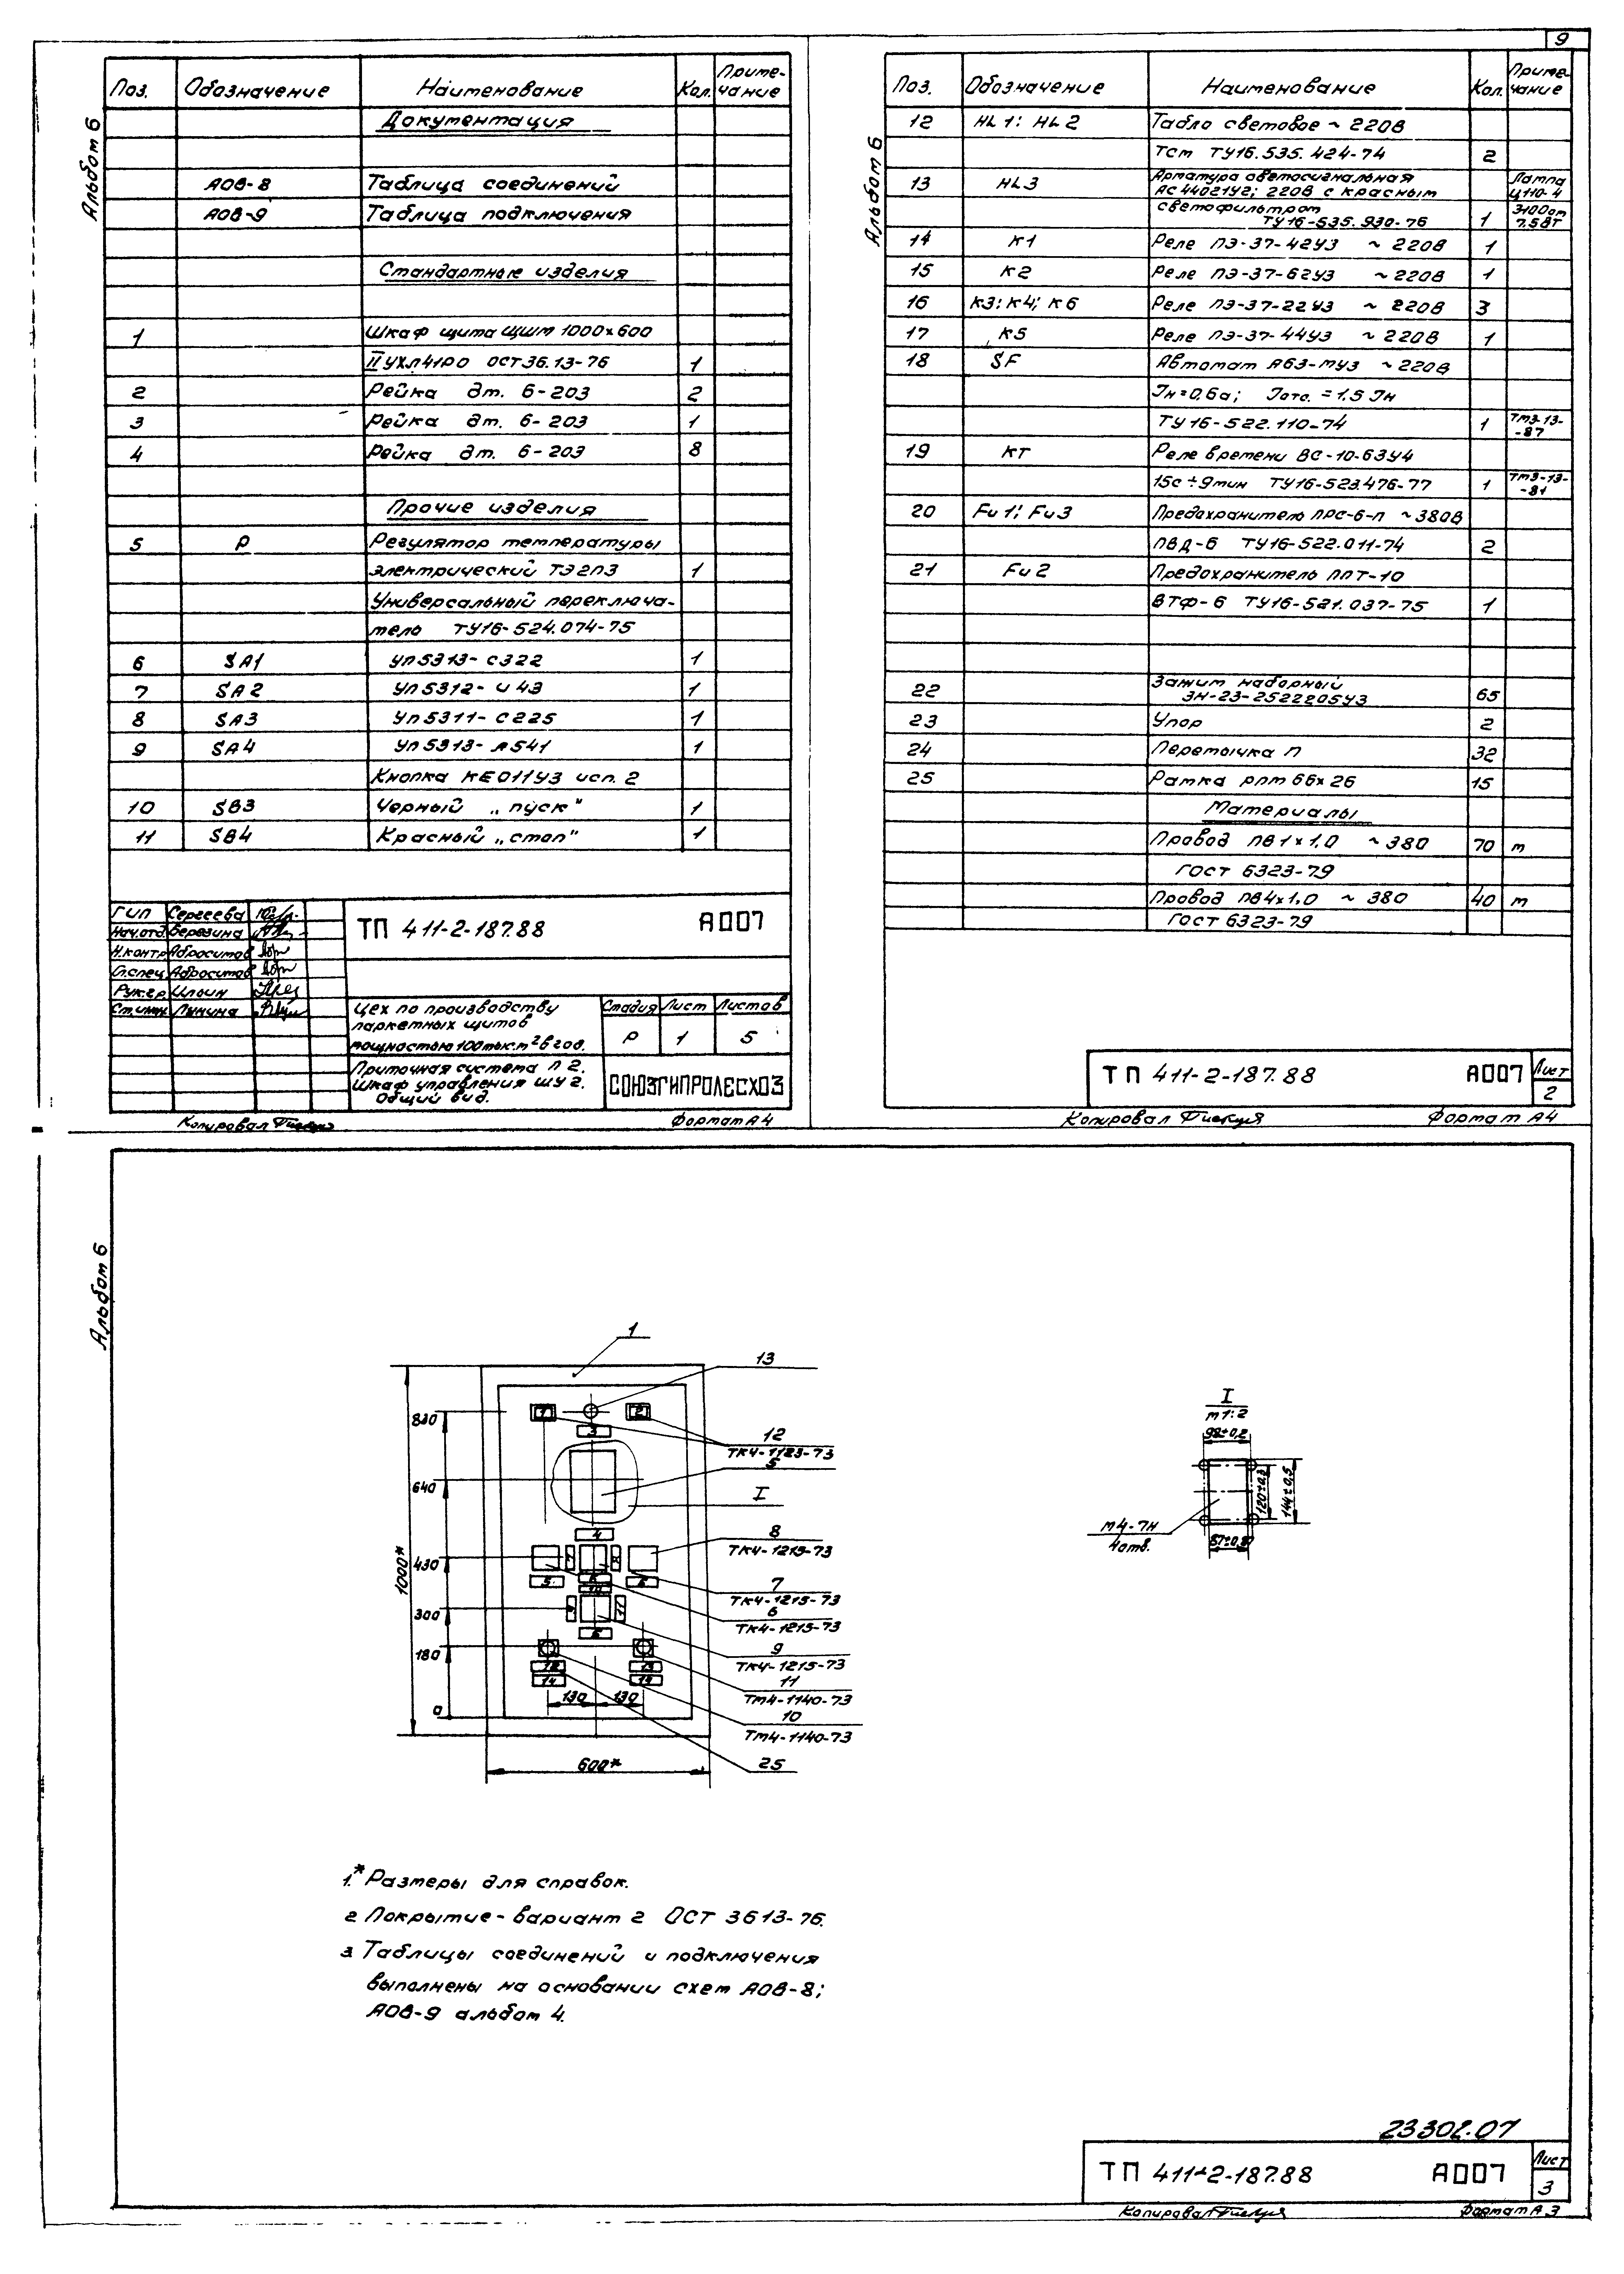 9
Альбом 6
Поз. Обозначение Наименование Кол. Приме-чание
Документация
АОВ-8 Таблица соединений
АОВ-9 Таблица подключения
Стандартные изделия
1 Шкаф щита ЩШМ 1000х600
II УХЛ41РО ОСТ 36.13-76 1
2 Рейка дт. 6-203 2
3 Рейка дт. 6-203 1
4 Рейка дт. 6-203 8
Прочие изделия
5 Р Регулятор температуры
электрический ТЭ2П3 1
Универсальный переключа-
тель ТУ16-524.074-75
6 SA1 УП5313-С322 1
7 SA2 УП5312-И43 1
8 SA3 УП5311-С225 1
9 SA4 УП5313-А541 1
Кнопка КЕ011У3 исп. 2
10 SB3 Черный „пуск" 1
11 SB4 Красный „стоп" 1
ГИП Сергеева
Нач.отд. Березина
Н.контр Абросимов
Гл.спец Абросимов
Рук.гр. Ильин
Ст.инж. Лунина
ТП 411-2-187.88 АОО7
Цех по производству
паркетных щитов
мощностью 100тыс.м² в год.
Стадия Лист Листов
Р 1 5
Приточная система П2.
Шкаф управления ШУ2.
Общий вид.
СОЮЗГИПРОЛЕСХОЗ
Копировал Формат А4
Альбом 6
Поз. Обозначение Наименование Кол. Приме-чание
12 HL1; HL2 Табло световое ~ 220В
ТСМ ТУ16.535.424-74 2
13 HL3 Арматура светосигнальная Лампа
АС44021У2; 220В с красным Ц110-4
светофильтром
ТУ16-535.930-76 1
14 К1 Реле ПЭ-37-42У3 ~ 220В 1
15 К2 Реле ПЭ-37-62У3 ~ 220В 1
16 К3; К4; К6 Реле ПЭ-37-22У3 ~ 220В 3
17 К5 Реле ПЭ-37-44У3 ~ 220В 1
18 SF Автомат А63-МУ3 ~ 220В
Iн=0,6а; Iотс. = 1,5 Iн
ТУ16-522.110-74 1 ТМ3-13-
-87
19 КТ Реле времени ВС-10-63У4
15с ÷ 9мин ТУ16-523.476-77 1 ТМ3-13-
-81
20 Fu1; Fu3 Предохранитель ПРС-6-П ~380В
ПВД-6 ТУ16-522.011-74 2
21 Fu2 Предохранитель ППТ-10
ВТФ-6 ТУ16-521.037-75 1
22 Зажим наборный
ЗН-23-2522205У3 65
23 Упор 2
24 Перемычка П 32
25 Рамка РПМ 66х26 15
Материалы
Провод ПВ1х1,0 ~ 380 70 м
ГОСТ 6323-79
Провод ПВ4х1,0 ~ 380 40 м
ГОСТ 6323-79
ТП 411-2-187.88 АОО7 Лист
2
Копировал Формат А4
Альбом 6
1
13
12
ТК4-1123-73
5
I
8
ТК4-1215-73
7
ТК4-1215-73
6
ТК4-1215-73
9
ТК4-1215-73
11
ТМ4-1140-73
10
ТМ4-1140-73
25
1000*
640
430
300
180
0
130 130
600*
1
2
3
4
I
М1:2
98±0,2
120±0,3
144±0,5
М4-7Н
4отв.
1.* Размеры для справок.
2 Покрытие - вариант 2 ОСТ 3613-76.
3 Таблицы соединений и подключения
выполнены на основании схем АОВ-8;
АОВ-9 альбом 4.
23302.07
ТП 411-2-187.88 АОО7 Лист
3
Копировал Формат А3